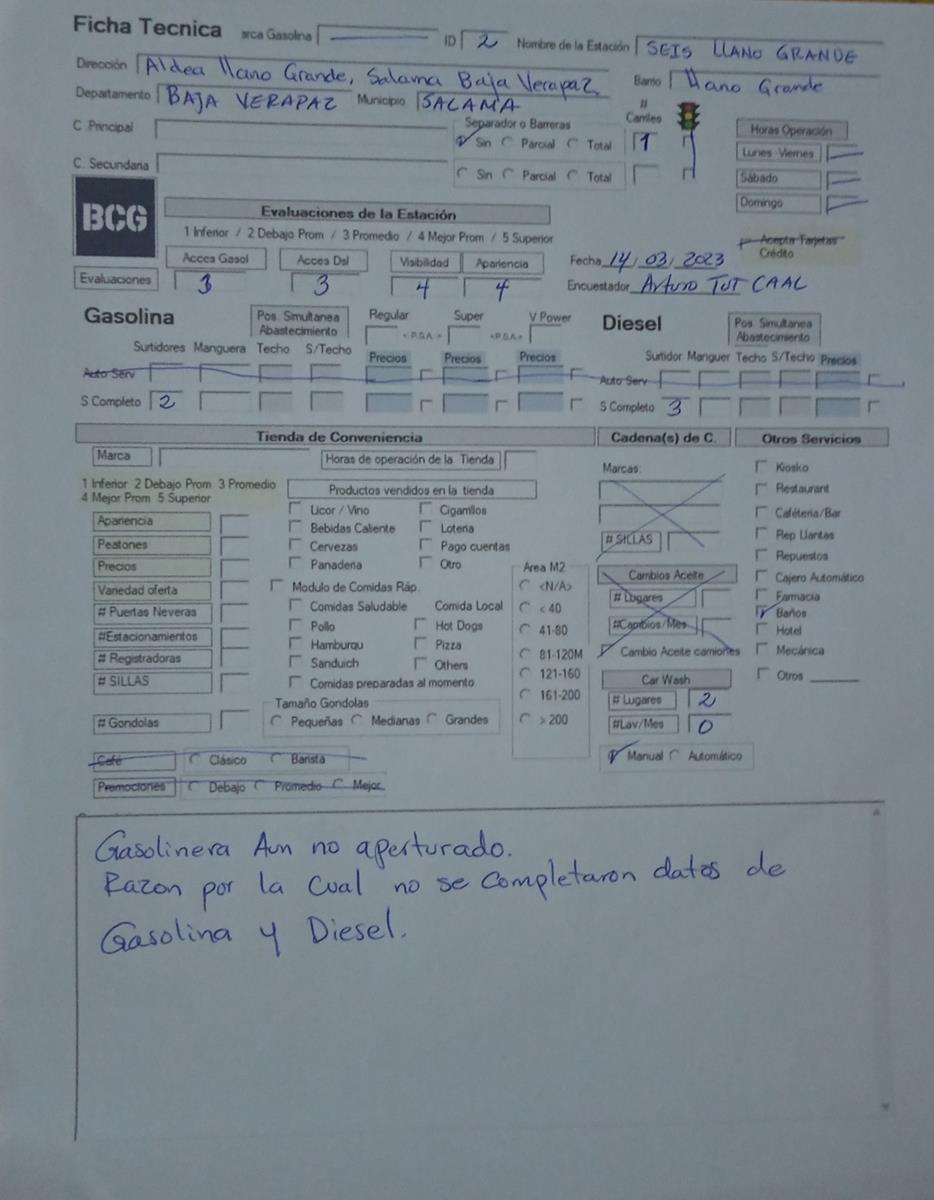 Ficha Tecnica arca Gasolina ID 2 Nombre de la Estación SEIS LLANO GRANDE
Dirección Aldea llano Grande, Salama Baja Verapaz Barrio Llano Grande
Departamento BAJA VERAPAZ Municipio SALAMA # Carriles
C Principal Separador o Barreras Sin Parcial Total 1 Horas Operación
Lunes -Viernes
C. Secundaria Sin Parcial Total Sábado
Domingo
BCG
Evaluaciones de la Estación
1 Inferior / 2 Debajo Prom / 3 Promedio / 4 Mejor Prom / 5 Superior
Acepta Tarjetas Crédito
Acces Gasol Acces Dsl Visibilidad Apariencia Fecha 14, 03, 2023
Evaluaciones 3 3 4 4 Encuestador Arturo TUT CAAL
Gasolina Pos. Simultanea Abastecimiento Regular Super V Power Diesel Pos. Simultanea Abastecimiento
< P.S.A. > < P.S.A. >
Surtidores Manguera Techo S/Techo Precios Precios Precios Surtidor Manguer Techo S/Techo Precios
Auto Serv Auto Serv
S Completo 2 S Completo 3
Tienda de Conveniencia Cadena(s) de C. Otros Servicios
Marca Horas de operación de la Tienda Marcas: Kiosko
1 Inferior 2 Debajo Prom 3 Promedio
4 Mejor Prom 5 Superior
Productos vendidos en la tienda Restaurant
Apariencia Licor / Vino Cigarrillos Caféteria/Bar
Peatones Bebidas Caliente Loteria # SILLAS Rep Llantas
Precios Cervezas Pago cuentas Repuestos
Variedad oferta Panaderia Otro Area M2 Cambios Aceite Cajero Automático
# Puertas Neveras Modulo de Comidas Ráp. <N/A> # Lugares Farmacia
Comidas Saludable Comida Local < 40 Baños
#Estacionamientos Pollo Hot Dogs 41-80 #Cambios/Mes Hotel
# Registradoras Hamburqu Pizza 81-120M Cambio Aceite camiones Mecánica
# SILLAS Sanduich Others 121-160 Car Wash Otros
Comidas preparadas al momento 161-200 # Lugares 2
# Gondolas Tamaño Gondolas Pequeñas Medianas Grandes > 200 #Lav/Mes 0
Café Clásico Barista Manual Automático
Promociones Debajo Promedio Mejor
Gasolinera Aun no aperturado.
Razon por la cual no se completaron datos de
Gasolina y Diesel.